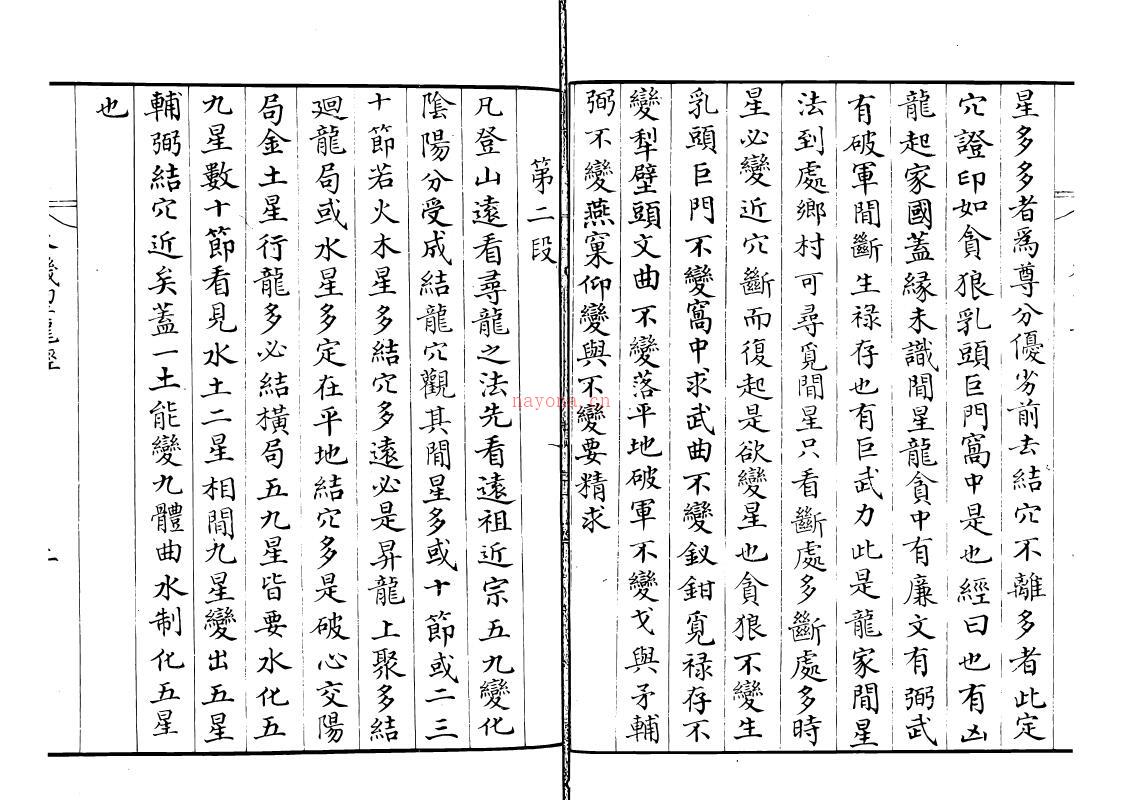 星多多者爲尊分優劣前去結穴不離多者此定
穴證印如貪狼乳頭巨門窩中是也經曰也有凶
龍起家國蓋縁未識間星龍貪中有廉文有弼武
有破軍間斷生禄存也有巨武力此是龍家間星
法到處鄉村可尋覓間星只看斷處多斷處多時
星必變近穴斷而復起是欲變星也貪狼不變生
乳頭巨門不變窩中求武曲不變釵鉗覓禄存不
變犁壁頭文曲不變落平地破軍不變戈與矛輔
弼不變燕窠仰變與不變要精求
第二段
凡登山遠看尋龍之法先看遠祖近宗五九變化
陰陽分受成結龍穴觀其間星多或十節或二三
十節若火木星多結穴多遠必是昇龍上聚多結
廻龍局或水星多定在平地結穴多是破心交陽
局金土星行龍多必結橫局五九星皆要水化五
九星數十節看見水土二星相間九星變出五星
輔弼結穴近矣蓋一土能變九體曲水制化五星
也
nayona.cn